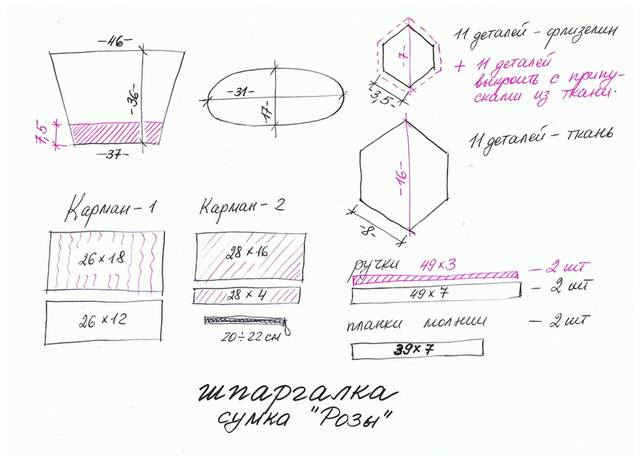 -46-
-36-
7,5
-37-
-31-
-17-
-7-
3,5-
11 деталей - флизелин
+ 11 деталей
выкроить с припу-
сками из ткани.
-16-
-8-
11 деталей - ткань
Карман - 1
26×18
26×12
Карман - 2
28×16
28×4
20÷22см
ручки 49×3 - 2 шт
49×7 - 2 шт
планки молнии - 2 шт
39×7
шпаргалка
сумка "Розы"